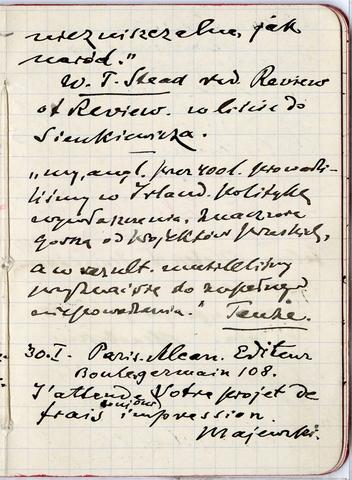 niezniszczalne, jak
naród."
W. T. Stead red. Review
of Review. w liście do
Sienkiewicza.
„my, angl. przez 400 l. prowadzi-
liśmy w Irland. politykę
wywłaszczenia, znacznie
gorszą od projektów pruskich,
a w rezult. musieliśmy
przyznać się do zupełnego
niepowodzenia." Tenże.
30.I. Paris. Alcan. Editeur
Boul. Germain 108.
J'attend toujours Votre projet de
frais impression.
Majewski.